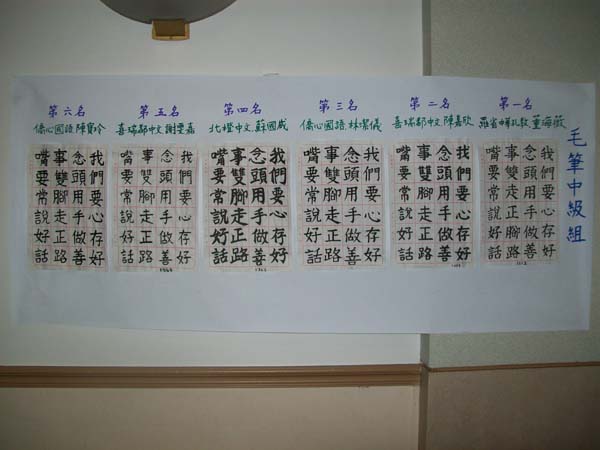 毛筆中級組
第一名
羅省中華孔教.董海薇
我們要心存好
念頭用手做善
事雙腳走正路
嘴要常說好話
第二名
喜瑞都中文.陳嘉欣
我們要心存好
念頭用手做善
事雙腳走正路
嘴要常說好話
第三名
僑心國語.林潔儀
我們要心存好
念頭用手做善
事雙腳走正路
嘴要常說好話
第四名
北橙中文.蘇國威
我們要心存好
念頭用手做善
事雙腳走正路
嘴要常說好話
第五名
喜瑞都中文
我們要心存好
念頭用手做善
事雙腳走正路
嘴要常說好話
第六名
僑心國語.陳寶玲
我們要心存好
念頭用手做善
事雙腳走正路
嘴要常說好話